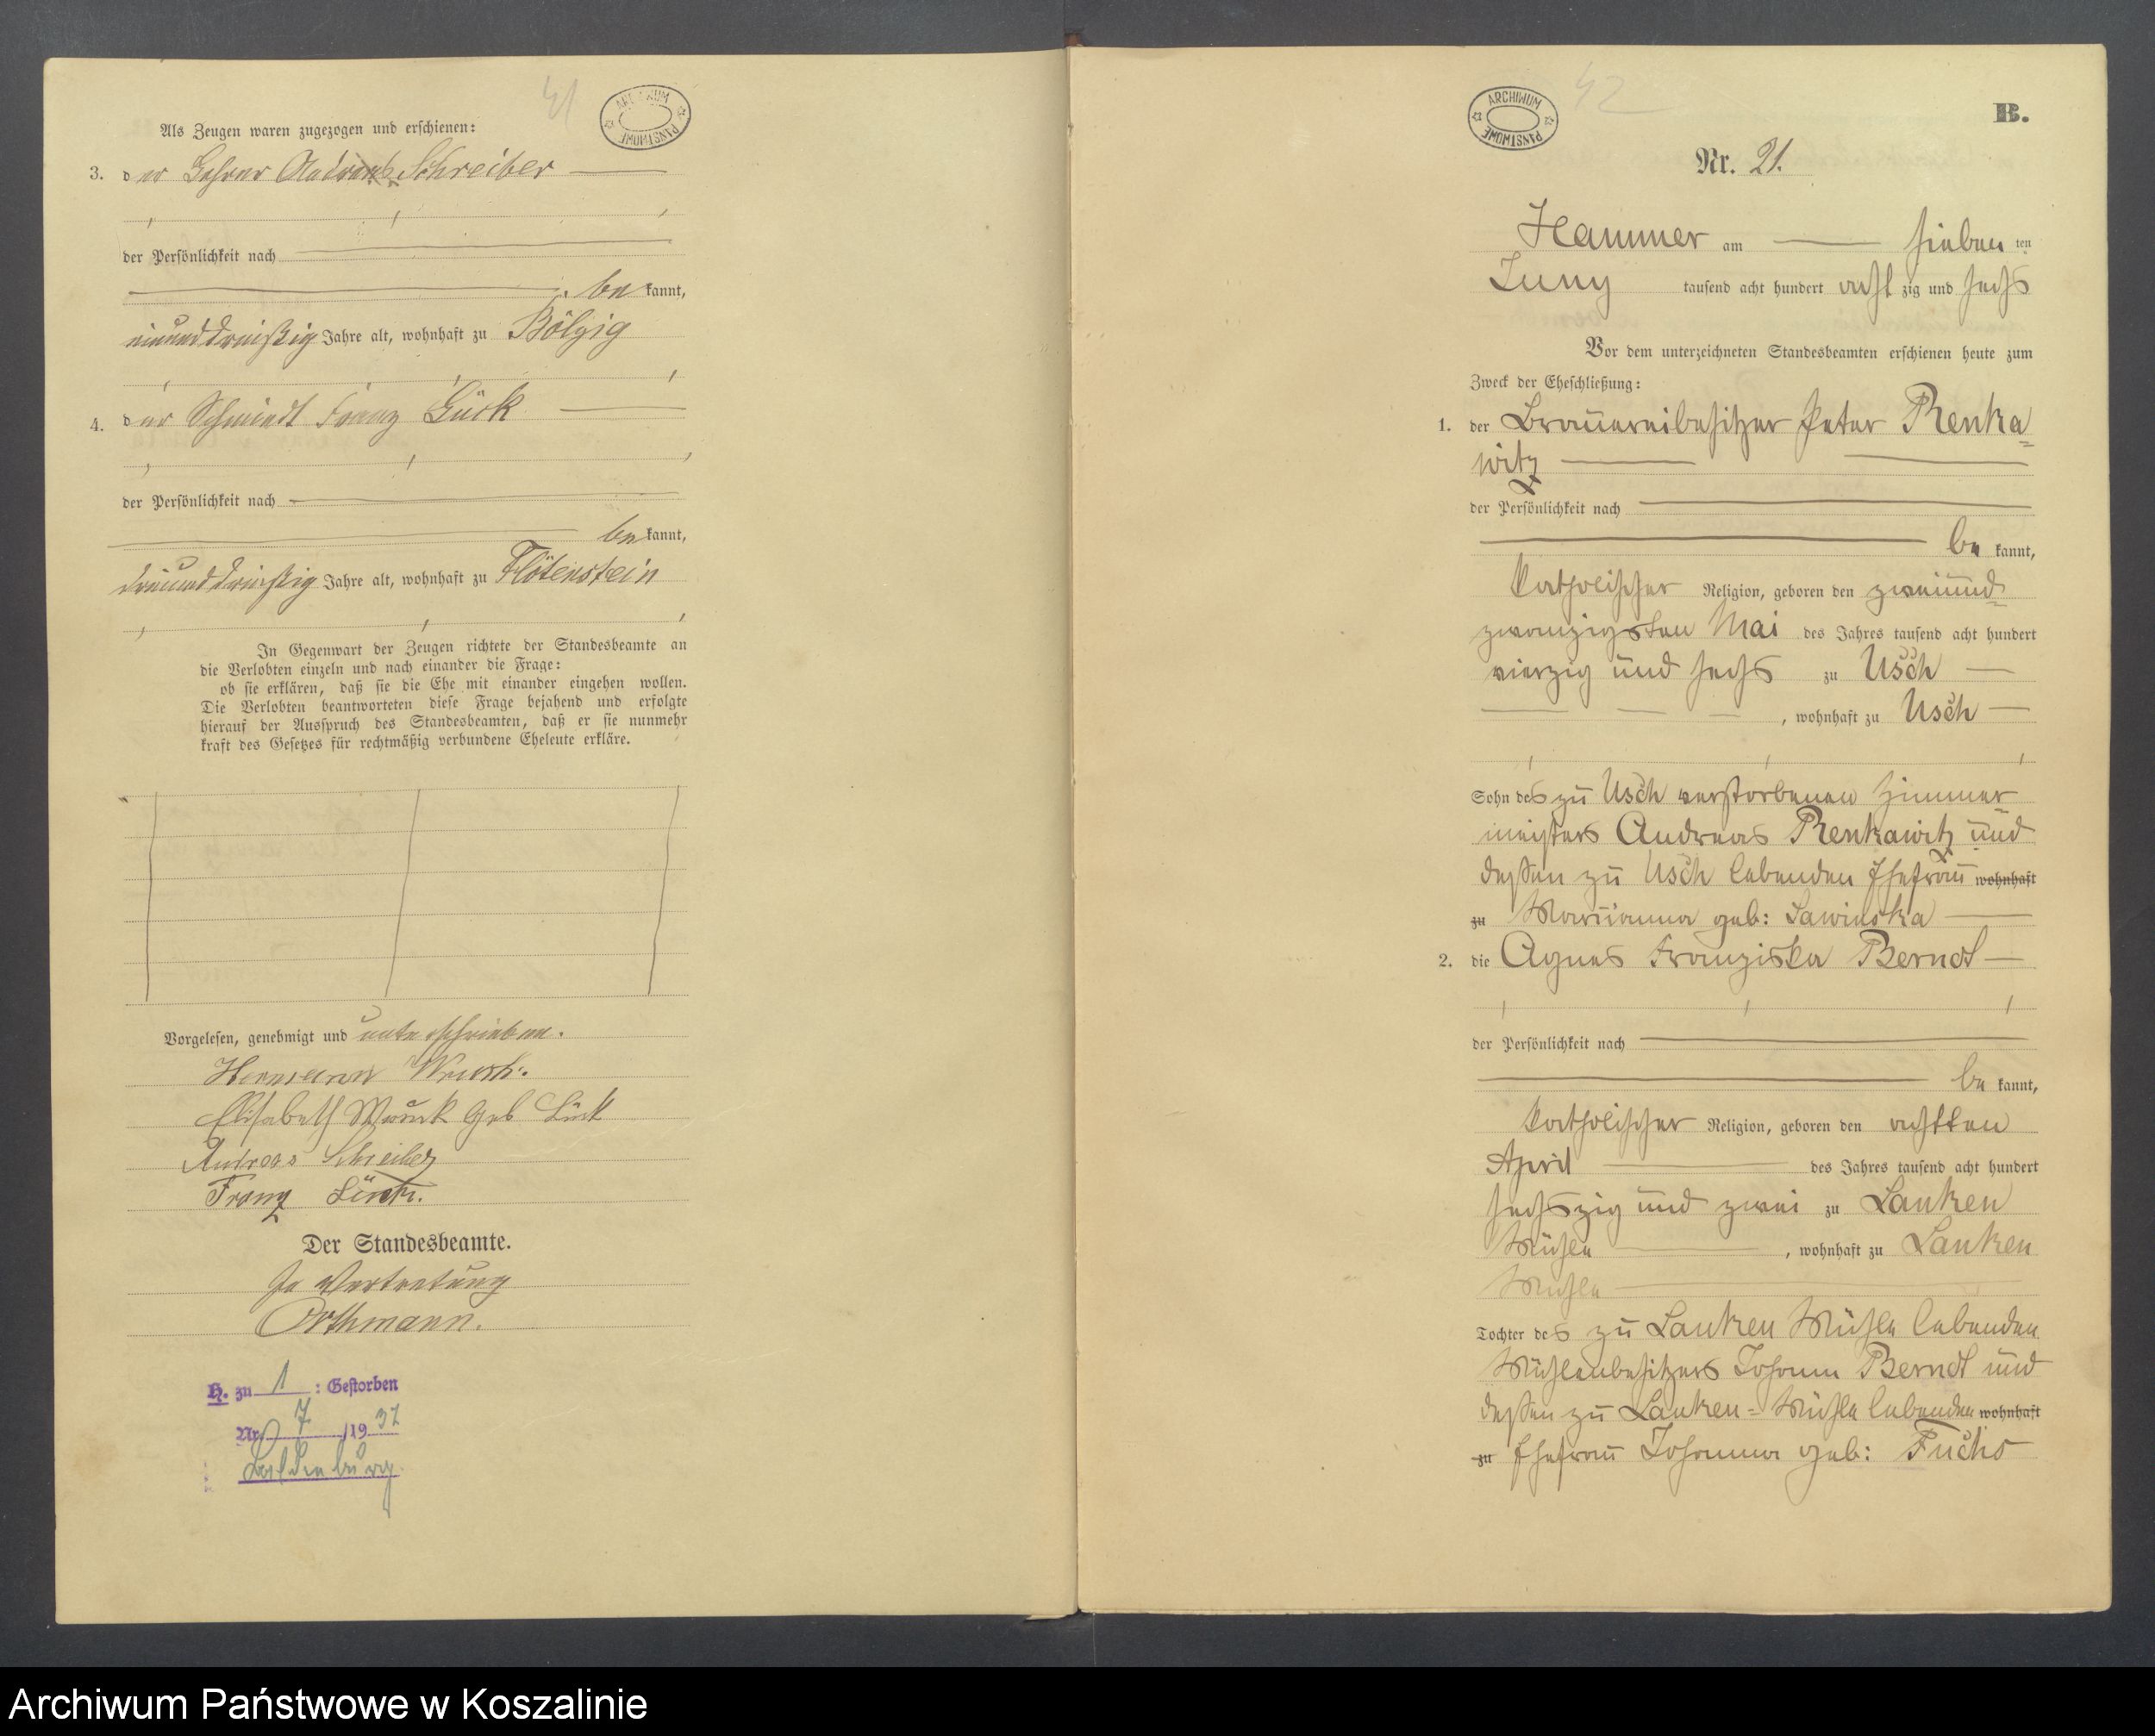 41
ARCHIWUM PAŃSTWOWE
Als Zeugen waren zugezogen und erschienen:
3. der Lehrer Andreas Schreiber
der Persönlichkeit nach
bekannt,
Jahre alt, wohnhaft zu Bölzig
4. der Schmiedt Franz Lück
der Persönlichkeit nach
bekannt,
dreiunddreißig Jahre alt, wohnhaft zu Flötenstein
In Gegenwart der Zeugen richtete der Standesbeamte an
die Verlobten einzeln und nach einander die Frage:
ob sie erklären, daß sie die Ehe mit einander eingehen wollen.
Die Verlobten beantworteten diese Frage bejahend und erfolgte
hierauf der Ausspruch des Standesbeamten, daß er sie nunmehr
kraft des Gesetzes für rechtmäßig verbundene Eheleute erkläre.
Vorgelesen, genehmigt und unterschrieben.
Hermann
Elisabeth geb Lück
Andreas Schreiber
Franz Lück.
Der Standesbeamte.
In Vertretung
Orthmann.
H. zu 1 : Gestorben
Nr. 7 /19 37
Baldenburg
42
ARCHIWUM PAŃSTWOWE
B.
Nr. 21.
Hammer am siebenten
Juny tausend acht hundert achtzig und sechs
Vor dem unterzeichneten Standesbeamten erschienen heute zum
Zweck der Eheschließung:
1. der Brauereibesitzer Peter Renka=
witz
der Persönlichkeit nach
bekannt,
katholischer Religion, geboren den zweiund=
zwanzigsten Mai des Jahres tausend acht hundert
vierzig und sechs zu Usch
, wohnhaft zu Usch
Sohn des zu Usch verstorbenen Zimmer=
meisters Andreas Renkawitz und
deßen zu Usch lebenden Ehefrau wohnhaft
zu Marianna geb: Sawinska
2. die Agnes Franziska Berndt
der Persönlichkeit nach
bekannt,
katholischer Religion, geboren den achtten
April des Jahres tausend acht hundert
sechszig und zwei zu Lanken
Mühle , wohnhaft zu Lanken
Mühle
Tochter des zu Lanken Mühle lebenden
Mühlenbesitzers Johann Berndt und
deßen zu Lanken=Mühle lebenden wohnhaft
zu Ehefrau Johanna geb: Fuchs
Archiwum Państwowe w Koszalinie